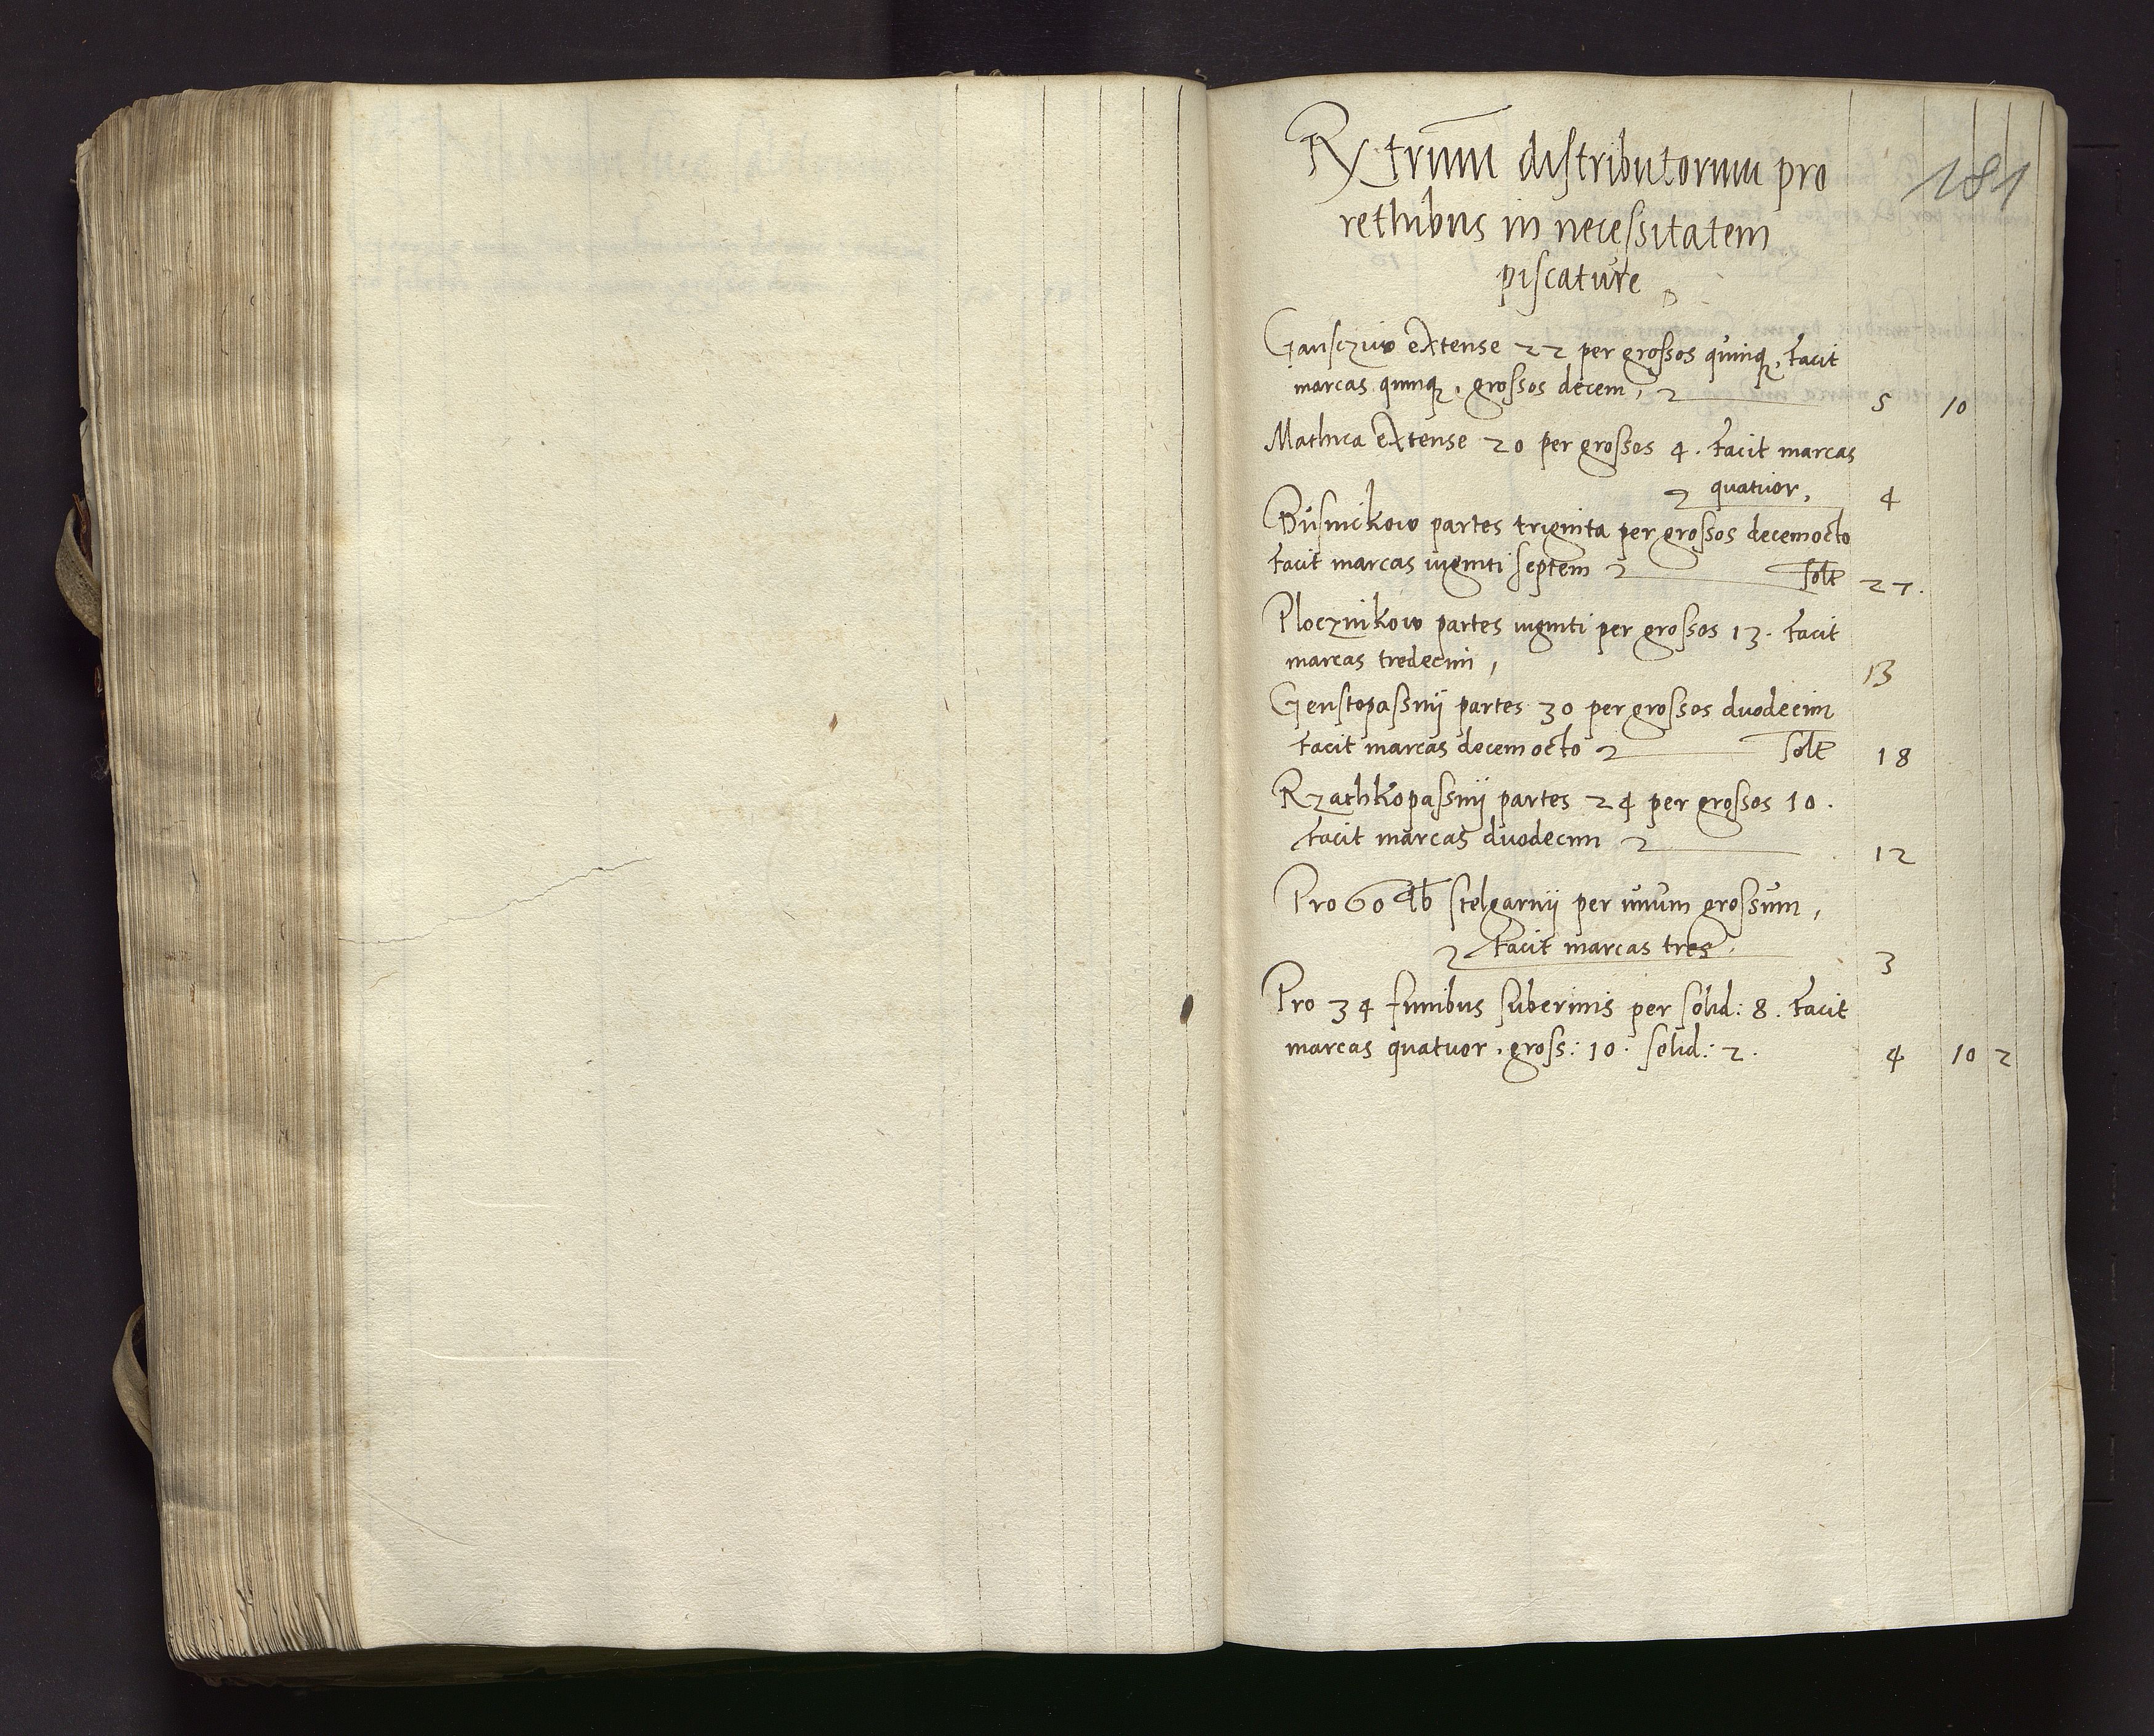 Rx trium distributorum pro
181
rethibus in necessitatem
piscature
Gansczuw extense 22 per grossos quinq, facit
marcas quinq, grossos decem, 5 10
Mathica extense 20 per grossos 4. facit marcas
quatuor, 4
Busnickow partes triginta per grossos decemocto
facit marcas viginti septem solt 27.
Plocznikow partes viginti per grossos 13. facit
marcas tredecim, 13
Genstopassnij partes 30 per grossos duodecim
facit marcas decem octo solt 18
Rzathkopassnij partes 24 per grossos 10.
facit marcas duodecim 12
Pro 60 lb stelgarnij per unum grossum,
facit marcas tres. 3
Pro 34 funibus suberinis per solid: 8. facit
marcas quatuor, gross: 10. solid: 2. 4 10 2